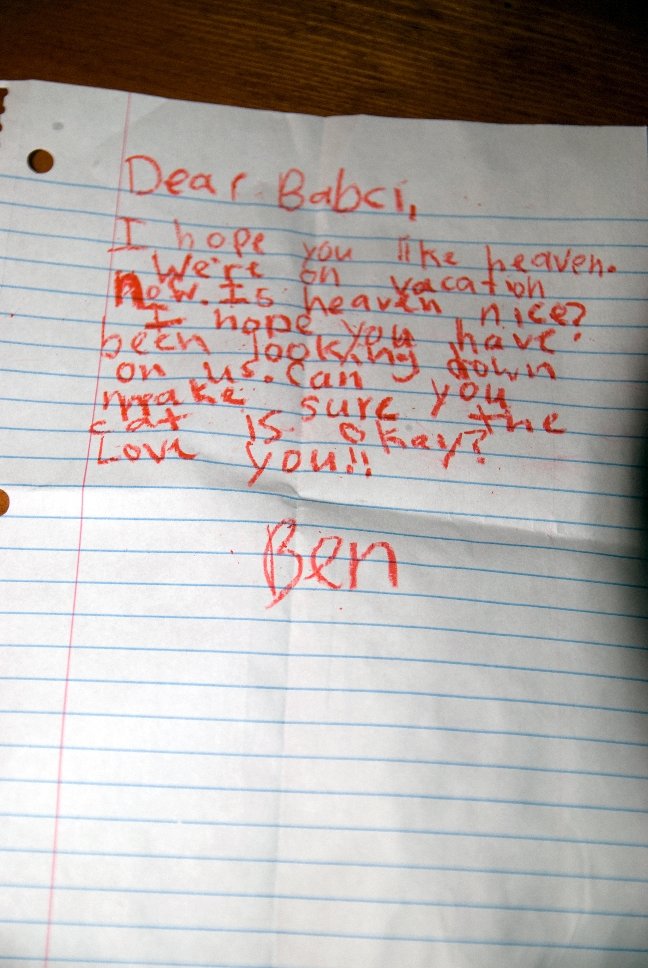 Dear Babci,
I hope you like heaven.
We're on vacation
now. Is heaven nice?
I hope you have
been looking down
on us. Can you
make sure the
cat is okay?
Love you!!
Ben